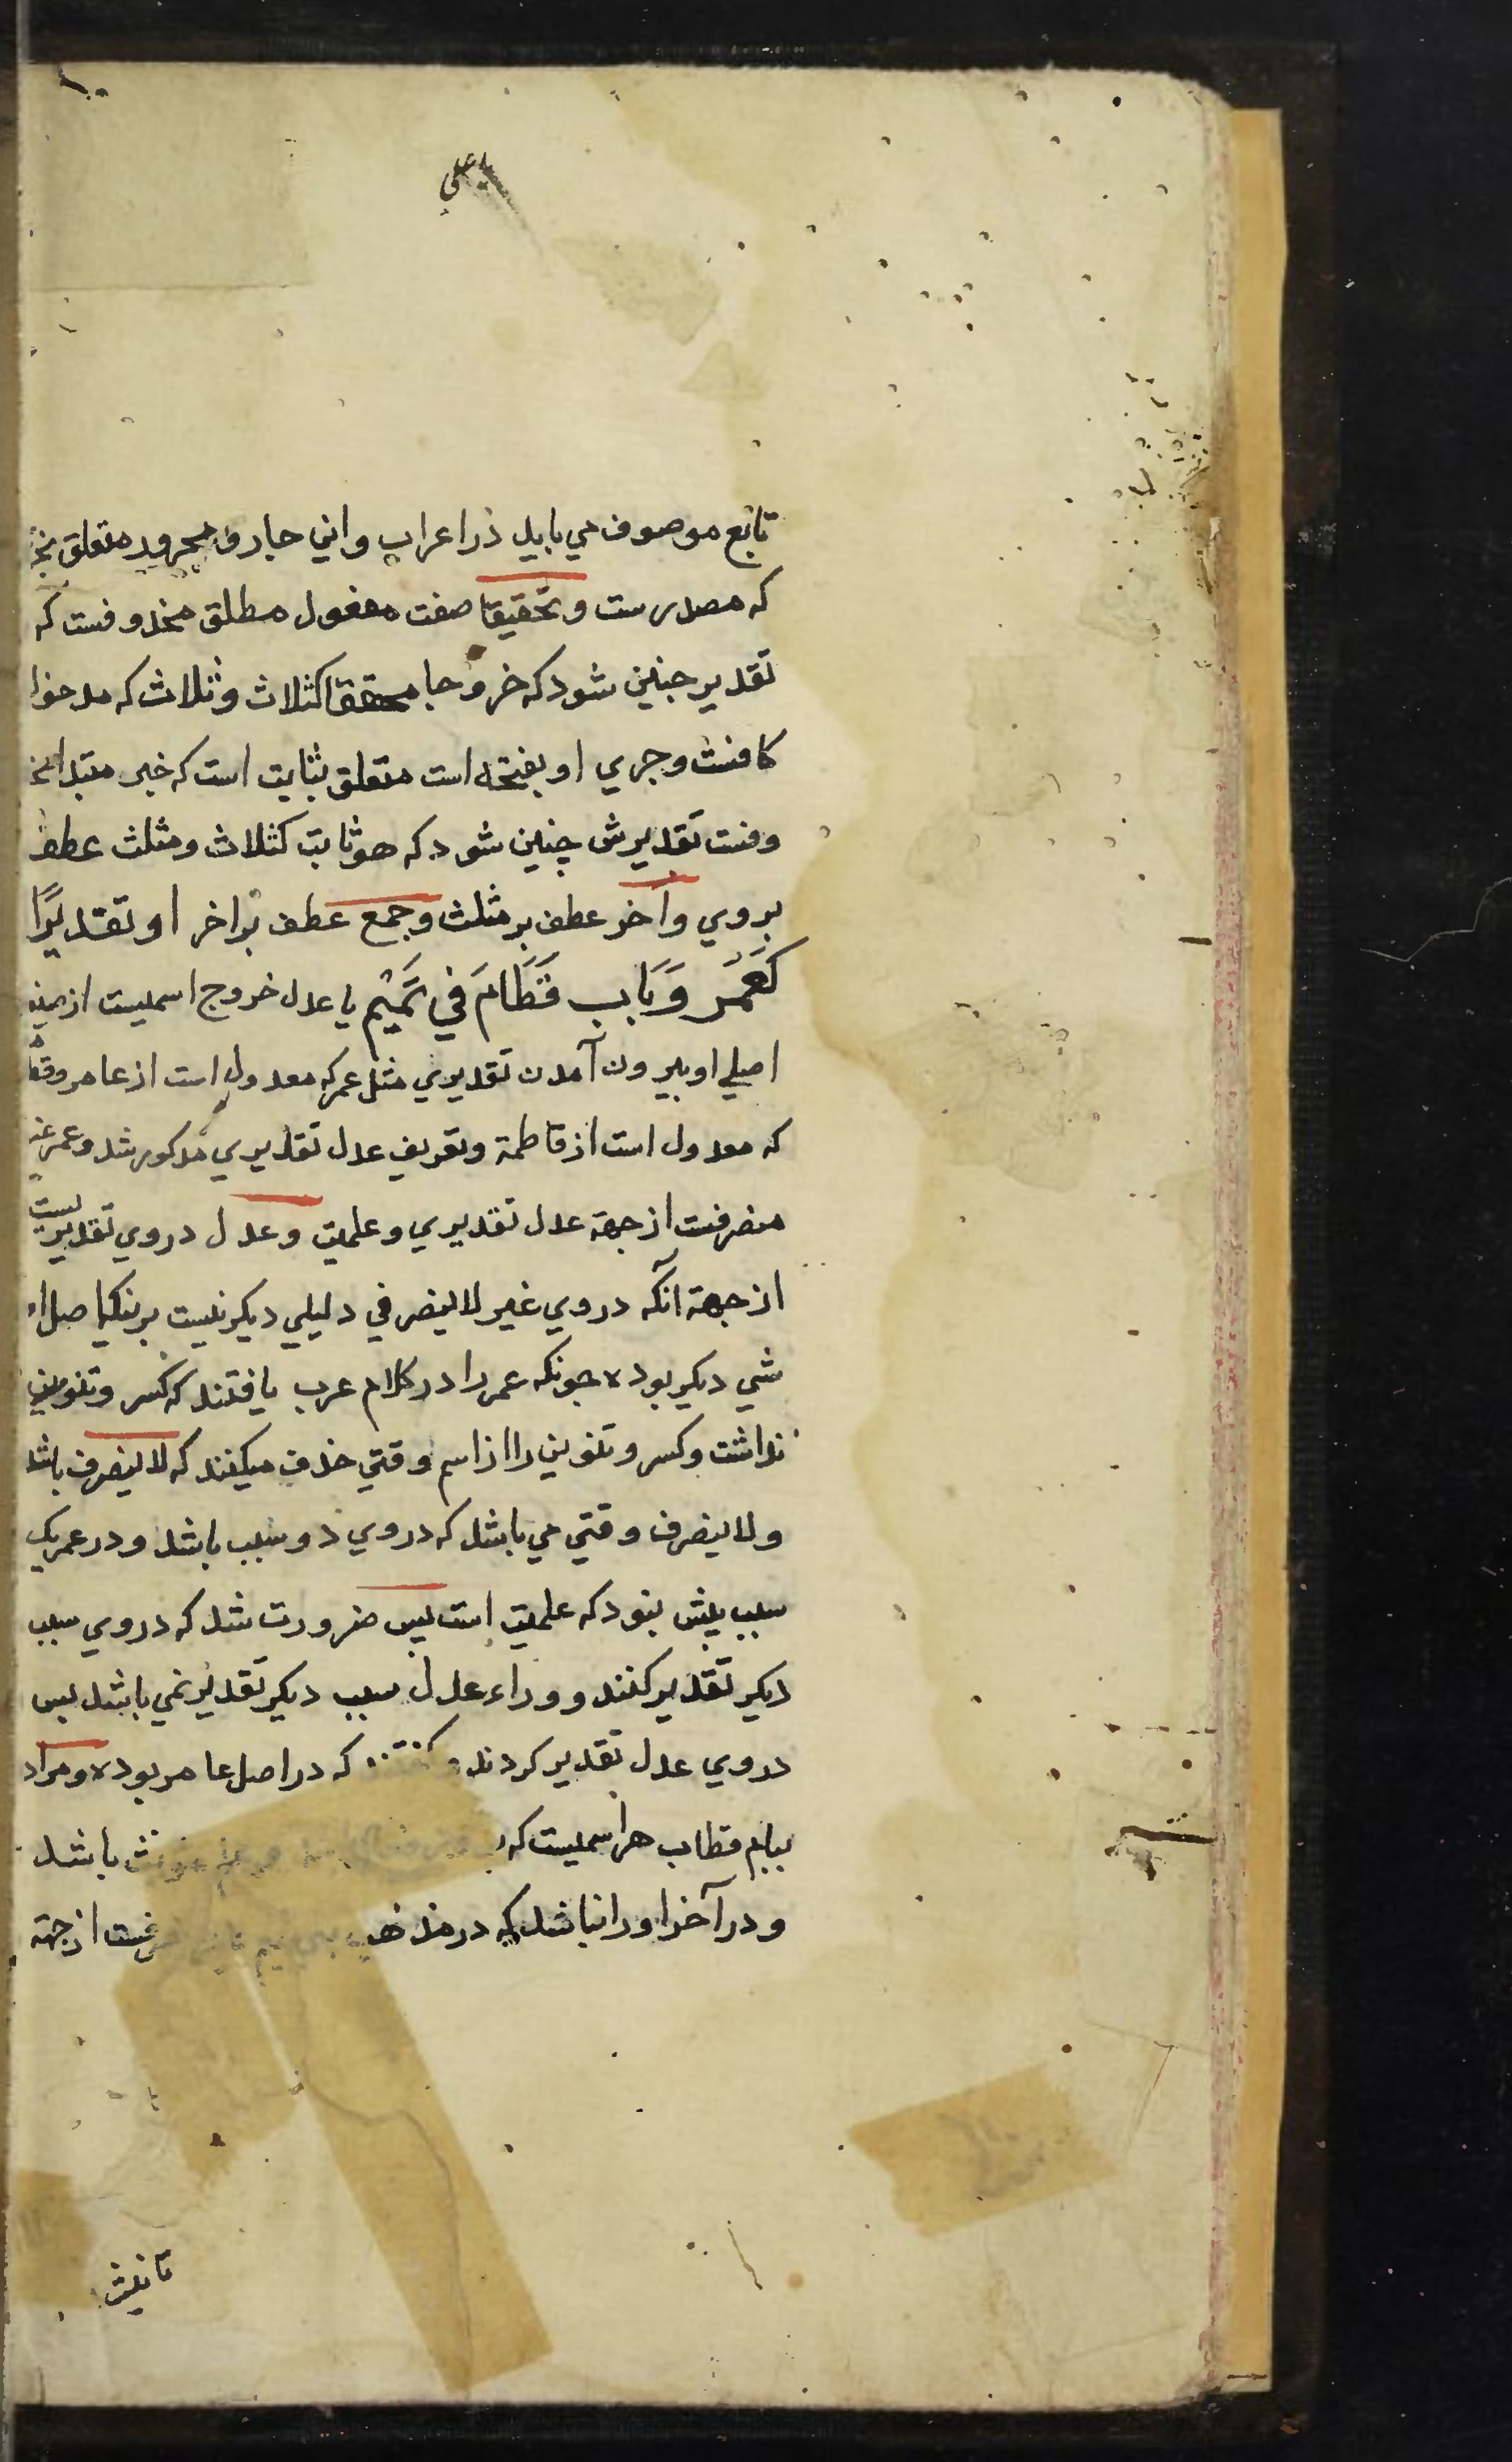 ۱۰
یا علی
تابع موصوف می باید در اعراب و این جار و مجرور متعلق بخر
که مصدرست و تحقیقا صفت مفعول مطلق محذوفست که
تقدیر جنین شود که خروجا محققا کثلاث و ثلاث که مدخول
کافست و جری او بفتحه است متعلق بثابت است که خبر مبتداء مح
وفست تقدیرش چنین شود که هو ثابت کثلاث و مثلث عطف
بروی وأخر عطف بر مثلث وجمع عطف بر اخر او تقدیرًا
كَعُمَرَ وَبَابِ قَطَامَ فِي تَمِيمٍ یا عدل خروج اسمیست از صیغه
اصلی او بیرون آمدن تقدیری مثل عمر که معدول است از عامر و قطام
که معدول است از قاطمة وتعریف عدل تقدیری مذکور شد وعمر غیر
منصرفست از جهة عدل تقدیری وعلمیت وعدل دروی تقدیریست
از جهة آنکه دروی غیر لاینصرفی دلیلی دیکر نیست برینکه اصل او
شی دیکر بوده جونکه عمر را در کلام عرب یافتند که کسر وتنوین
نداشت وکسر وتنوین را از اسم وقتی حذف میکنند که لاینصرف باشد
ولاینصرف وقتی می باشد که دروی دو سبب باشد ودر عمر یک
سبب بیش نبود که علمیت است پس ضرورت شد که دروی سبب
دیکر تقدیر کنند و وراء عدل سبب دیکر تقدیر نمی باشد پس
دروی عدل تقدیر کردند و کفتند که در اصل عامر بوده ومراد
بباب قطام هر اسمیست که مونث باشد
ودر آخر او را نباشد که در مذهب بنی تمیم از جهة
تانیث